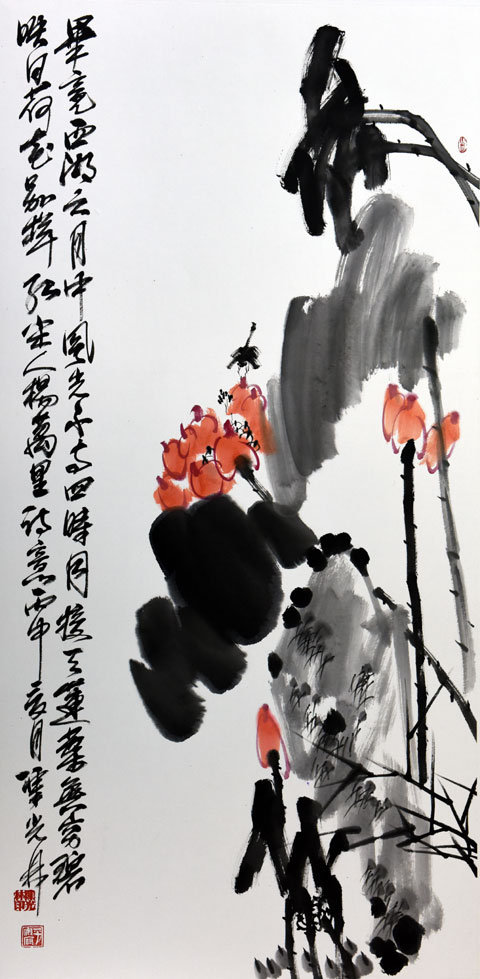 畢竟西湖六月中風光不与四時同接天蓮葉無窮碧
映日荷花别樣紅宋人楊萬里詩意丙申夏月光林